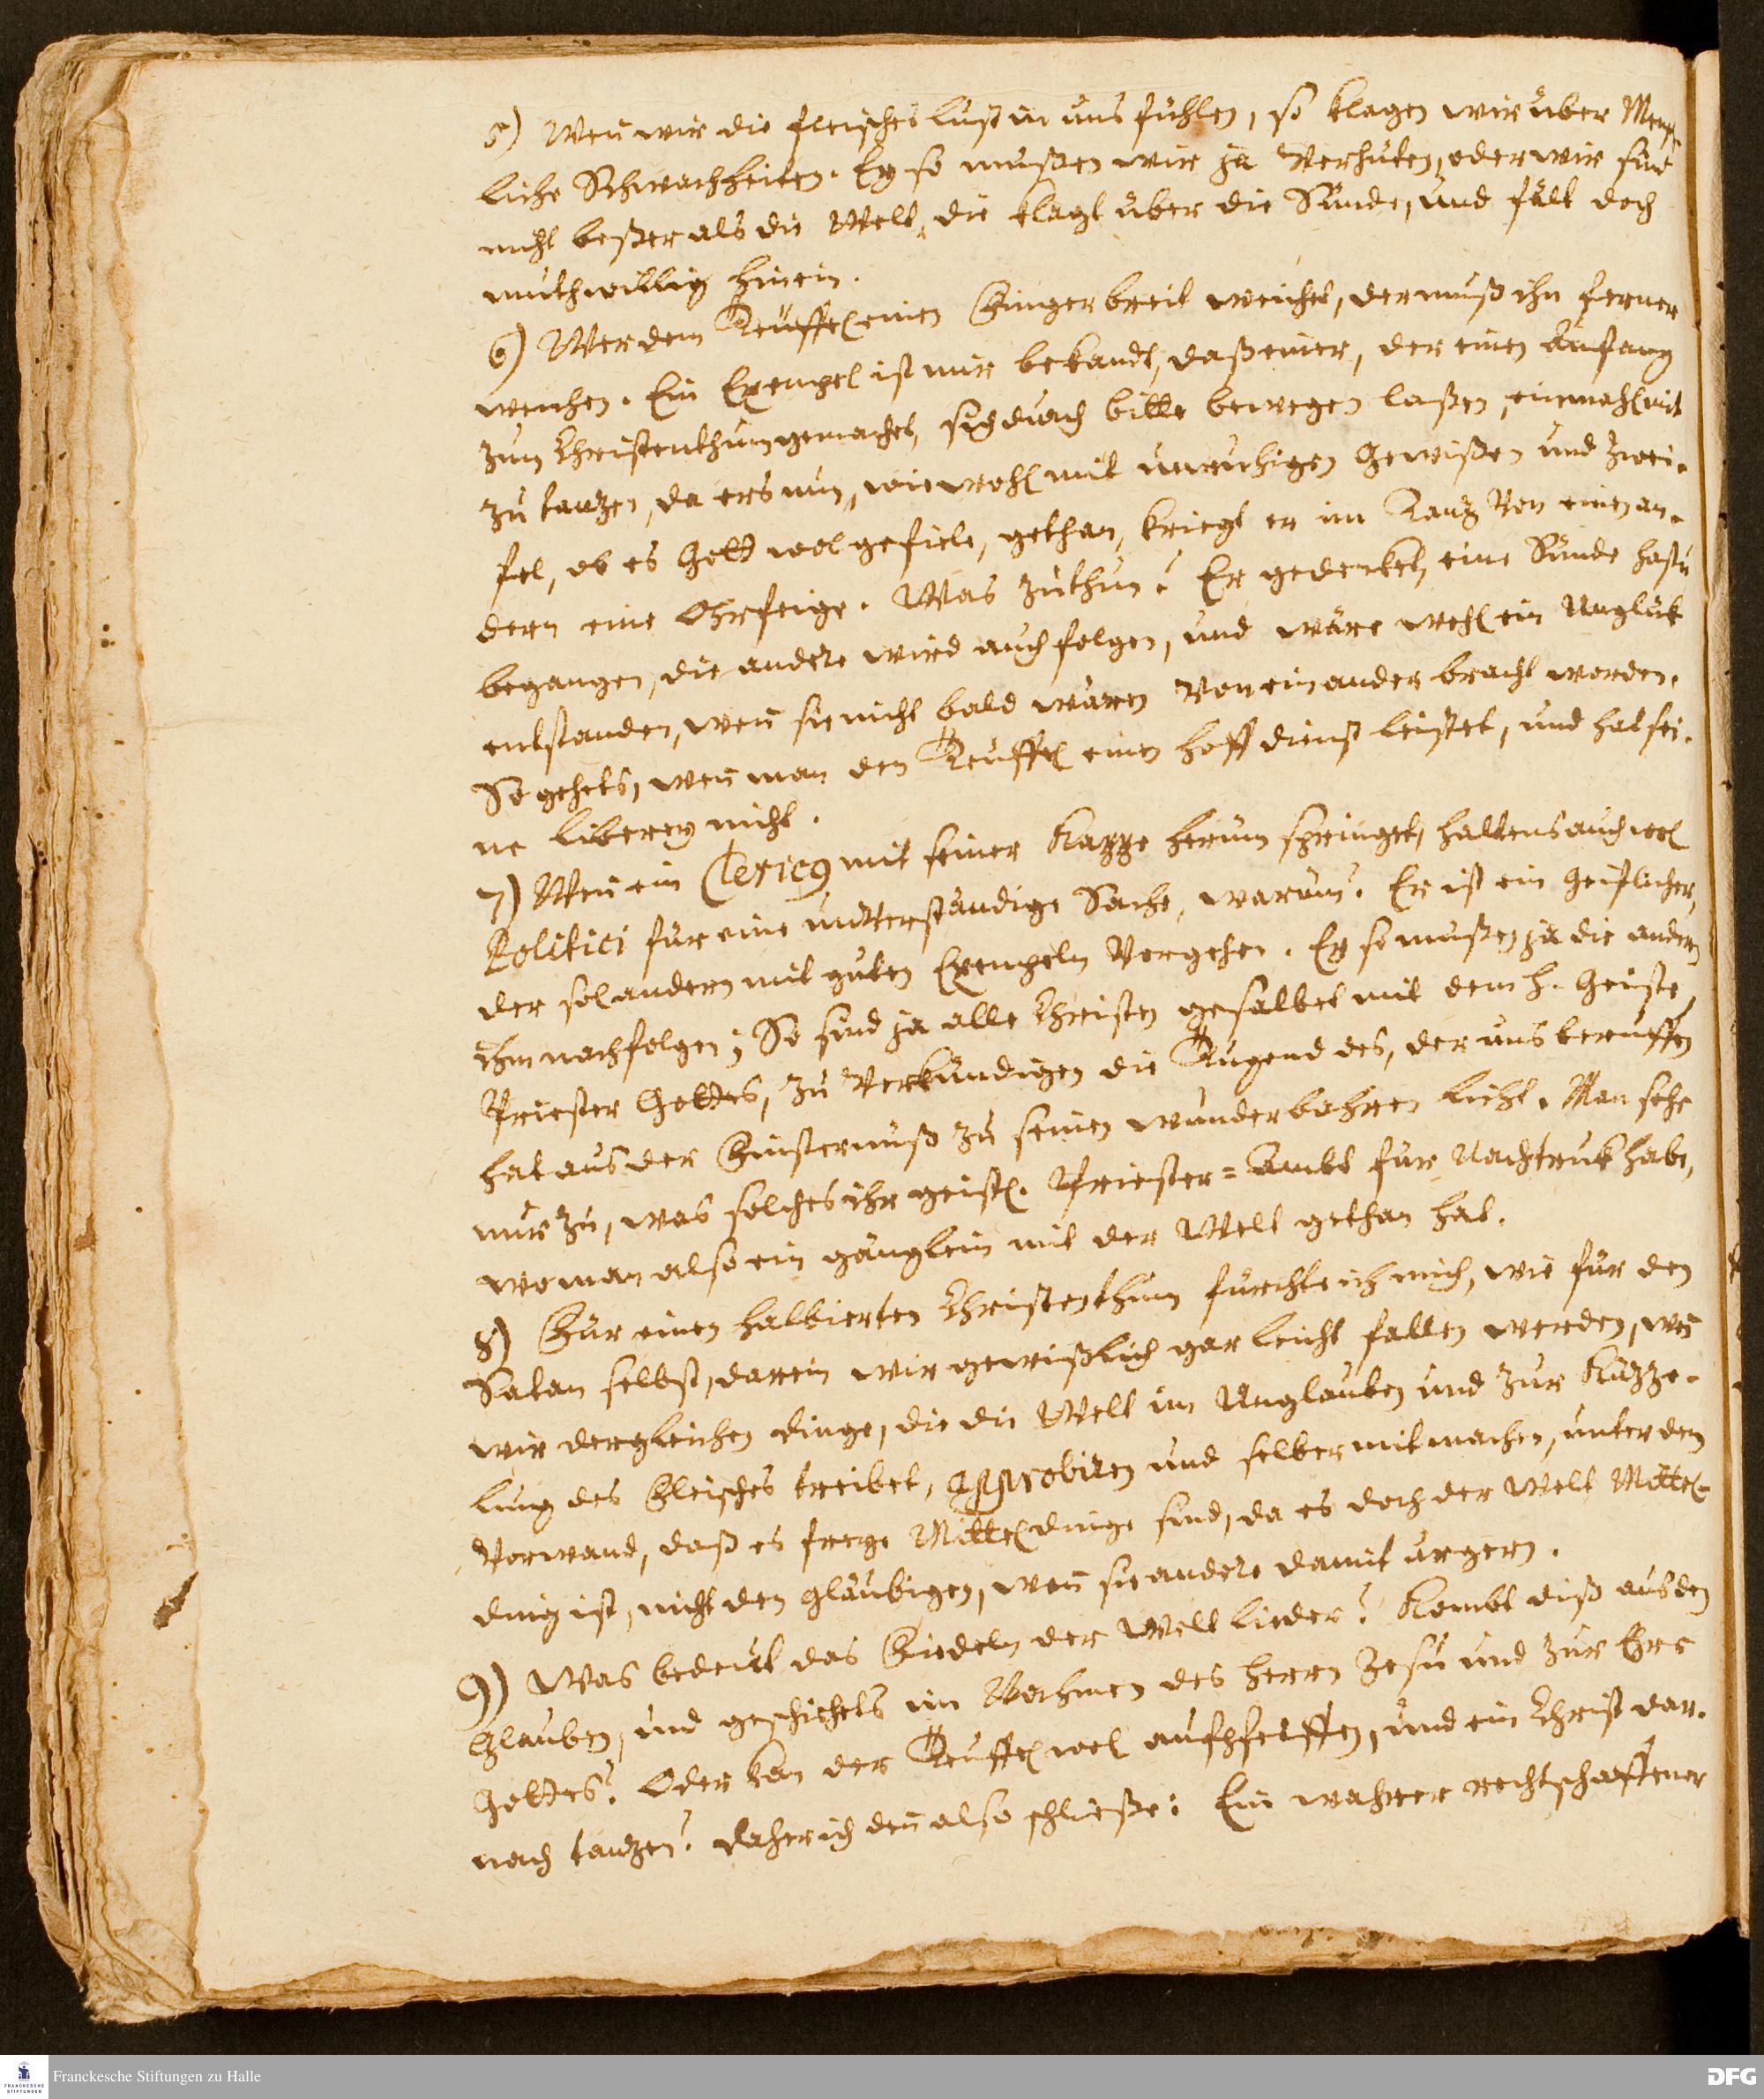 5) Wen̄ wir die fleisches lust in uns fühlen, so klagen wir über Mensch
liche Schwachheiten. Ey so mußen wir ja verhuten, oder wir sind
nicht beßer als die Welt, die klagt über die Sünde, und fält doch
muthwillig hinein.
6) Wer dem Teuffel einen Finger breit weichet, der muß ihn ferner
weichen. Ein Exempel ist mir bekandt, daß einer, der einen Anfang
zum Christenthum gemachet, sich durch bitte bewegen laßen, einmahl mit
zu tantzen, da ers nun, wiewohl mit unruhigen Gewißen und Zwei-
fel, ob es Gott wol gefiele, gethan, kriegt er im Tantz von einen an-
dern eine Ohrfeige. Was zuthun? Er gedencket, eine Sünde hastu
begangen, die andere wird auch folgen, und wäre wohl ein Unglük
entstanden, wen̄ sie nicht bald wären von einander bracht worden.
So gehets, wen̄ man den Teuffel einen hoff dienst leistet, und hat sei-
ne liberey nicht.
7) Wen̄ ein Clericq mit seiner Kappe herum springet, haltens auch wol
Politici für eine unverständige Sache, warüm? Er ist ein Geistlicher,
der sol andern mit guten Exempeln vorgehen. Ey so mußen ja die andern
ihm nachfolgen; So sind ja alle Christen gesalbet mit dem h. Geiste,
Priester Gottes, zu verkündigen die Tugend des, der uns beruffen
hat aus der Finsternüß zu seinen wunderbahren licht. Man sehe
nur zu, was solches ihr geistl. Priester-Ambt für Nachtruk habe,
wo man also ein gänglein mit der Welt gethan hat.
8) Für einen halbierten Christenthum fürchte ich mich, wie für den
Satan selbst, darein wir gewißlich gar leicht fallen werden, wen̄
wir dergleichen dinge, die die Welt im Unglauben und zur Kütze-
lung des Fleisches treibet, approbiren und selber mit machen, unter dem
Vorwand, daß es freye Mitteldinge sind, da es doch der Welt Mittel-
ding ist, nicht den gläubigen, wen̄ sie andere damit ärgern.
9) Was bedeut das Fiedeln der Welt lieder? Kombt diß aus den
Glauben, und geschichets im Nahmen des Herrn Jesu und zur Ehre
Gottes? Oder kan der Teuffel wol aufpfeiffen, und ein Christ dar-
nach tantzen? daher ich den̄ also schließe: Ein wahrer rechtschaffener
Franckesche Stiftungen zu Halle
FRANCKESCHE
STIFTUNGEN
DFG